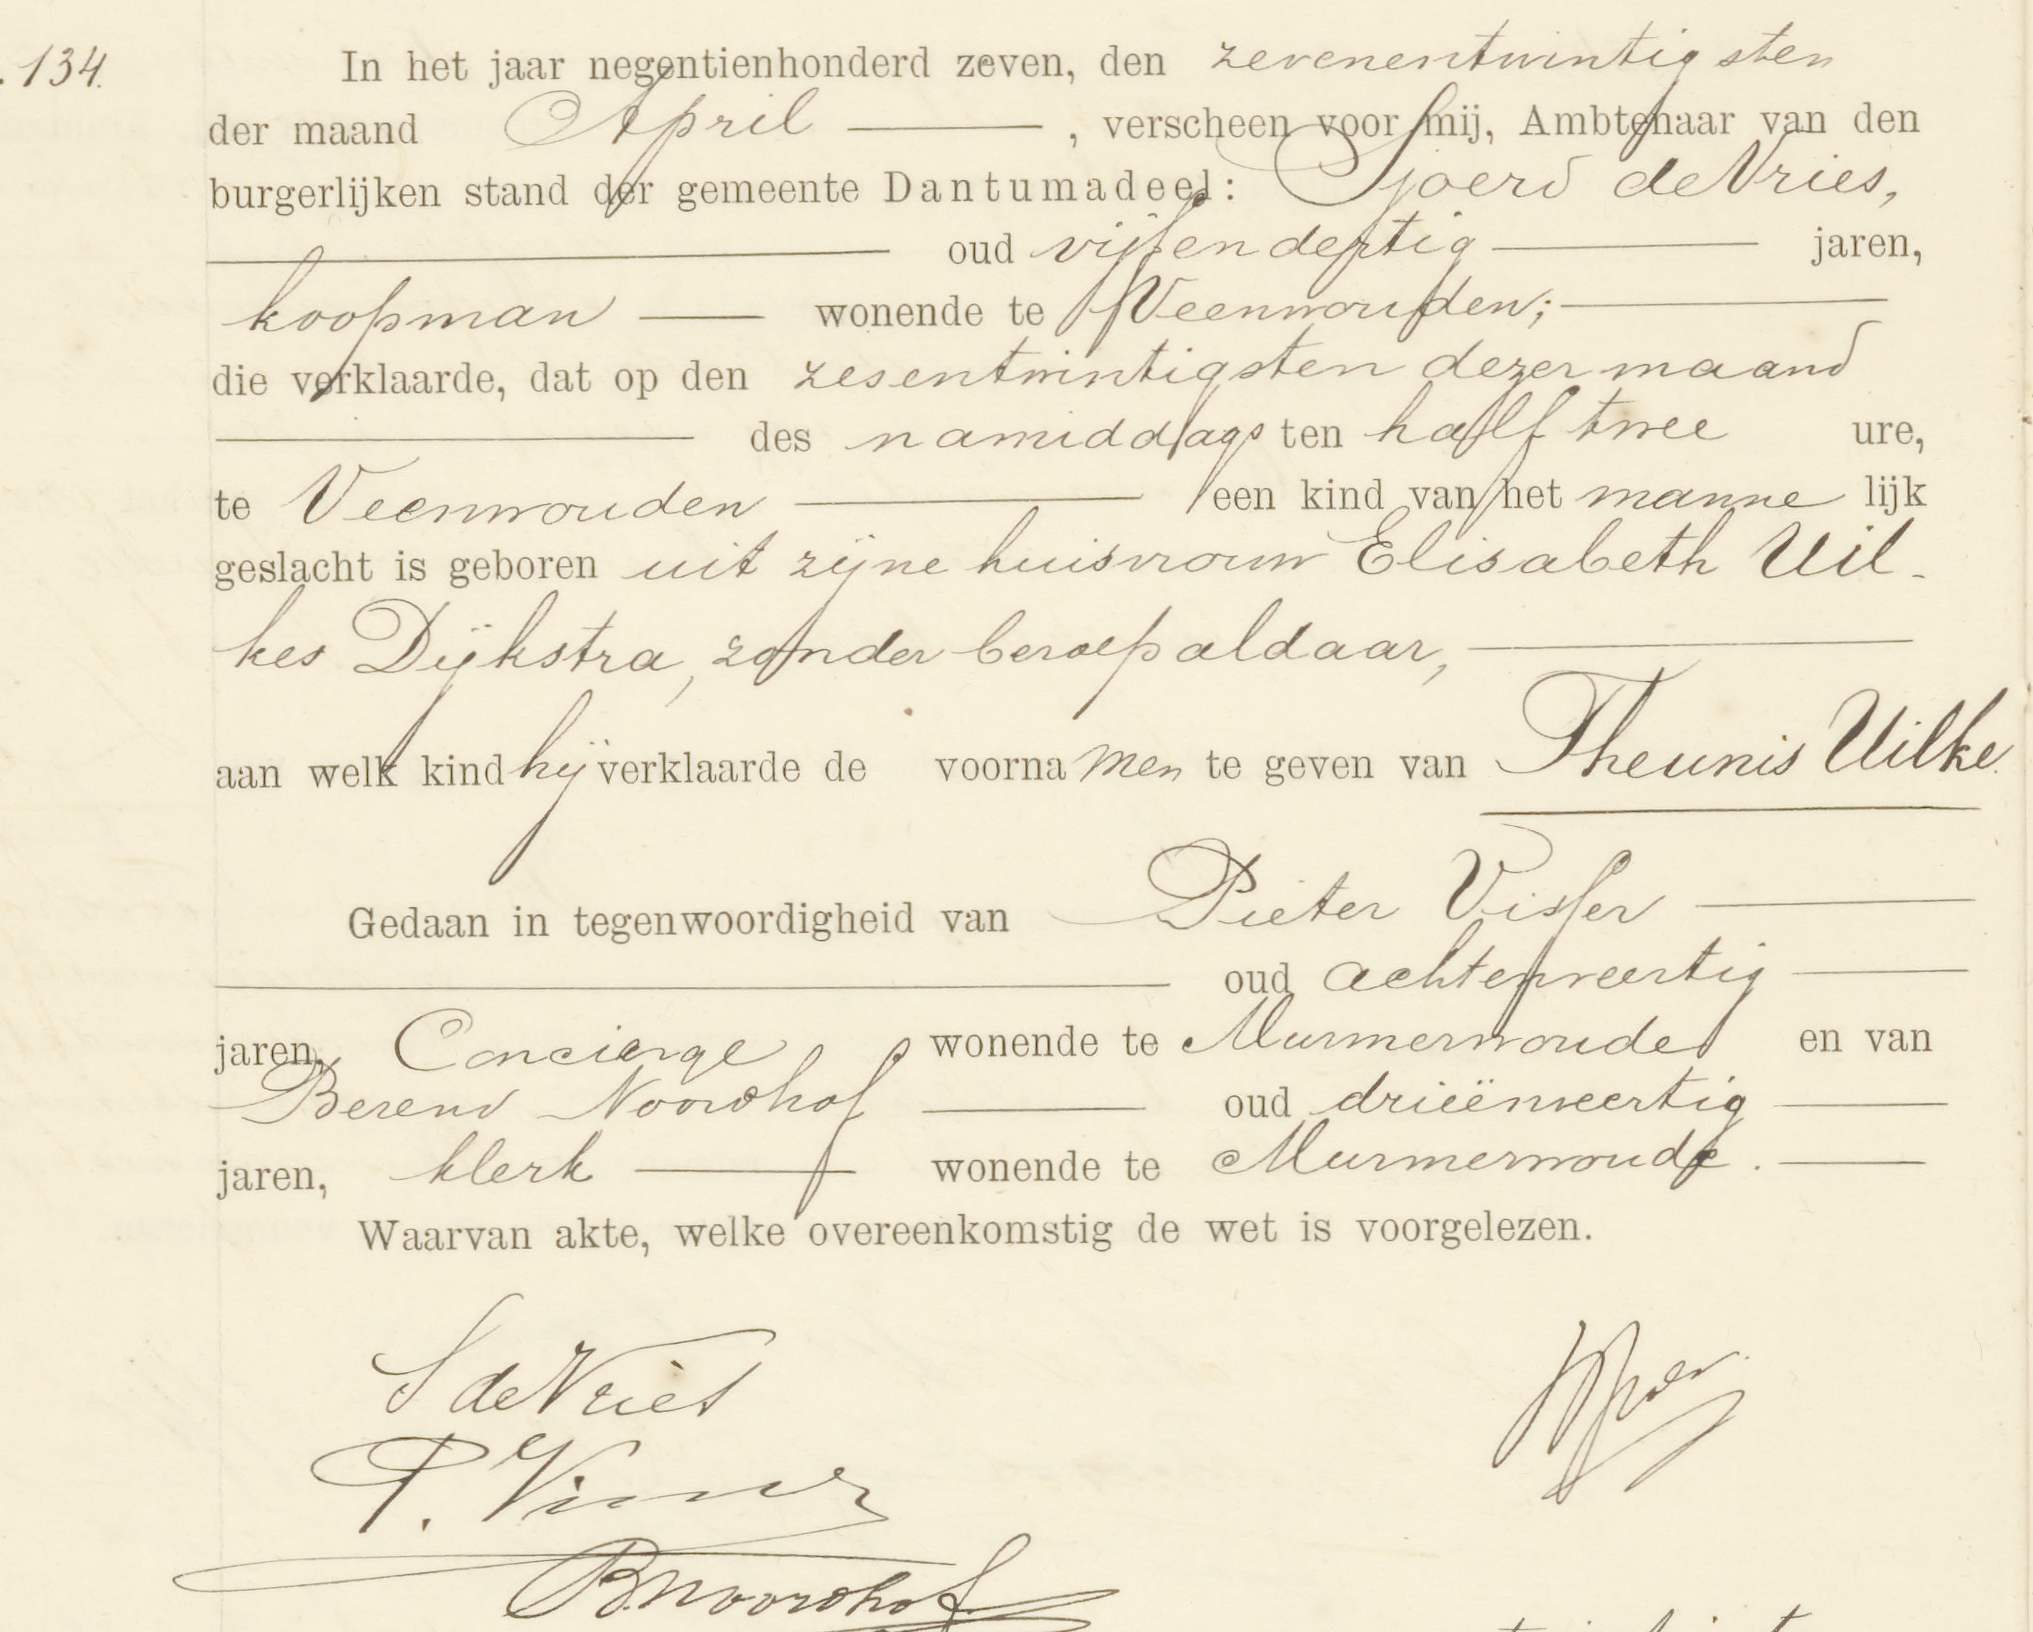 134.
In het jaar negentienhonderd zeven, den zevenentwintigsten
der maand April, verscheen voor mij, Ambtenaar van den
burgerlijken stand der gemeente Dantumadeel: Sjoerd de Vries,
oud vijfendertig jaren,
koopman wonende te Veenwouden;
die verklaarde, dat op den zesentwintigsten dezer maand
des namiddags ten half twee ure,
te Veenwouden een kind van het mannelijk
geslacht is geboren uit zijne huisvrouw Elisabeth Uil-
kes Dijkstra, zonder beroep aldaar,
aan welk kind hij verklaarde de voornamen te geven van Theunis Uilke.
Gedaan in tegenwoordigheid van Pieter Visser
oud achtenveertig
jaren, Concierge wonende te Murmerwoude en van
Berend Noordhof oud drieënveertig
jaren, klerk wonende te Murmerwoude.
Waarvan akte, welke overeenkomstig de wet is voorgelezen.
S de Vries
P. Visser
B Noordhof